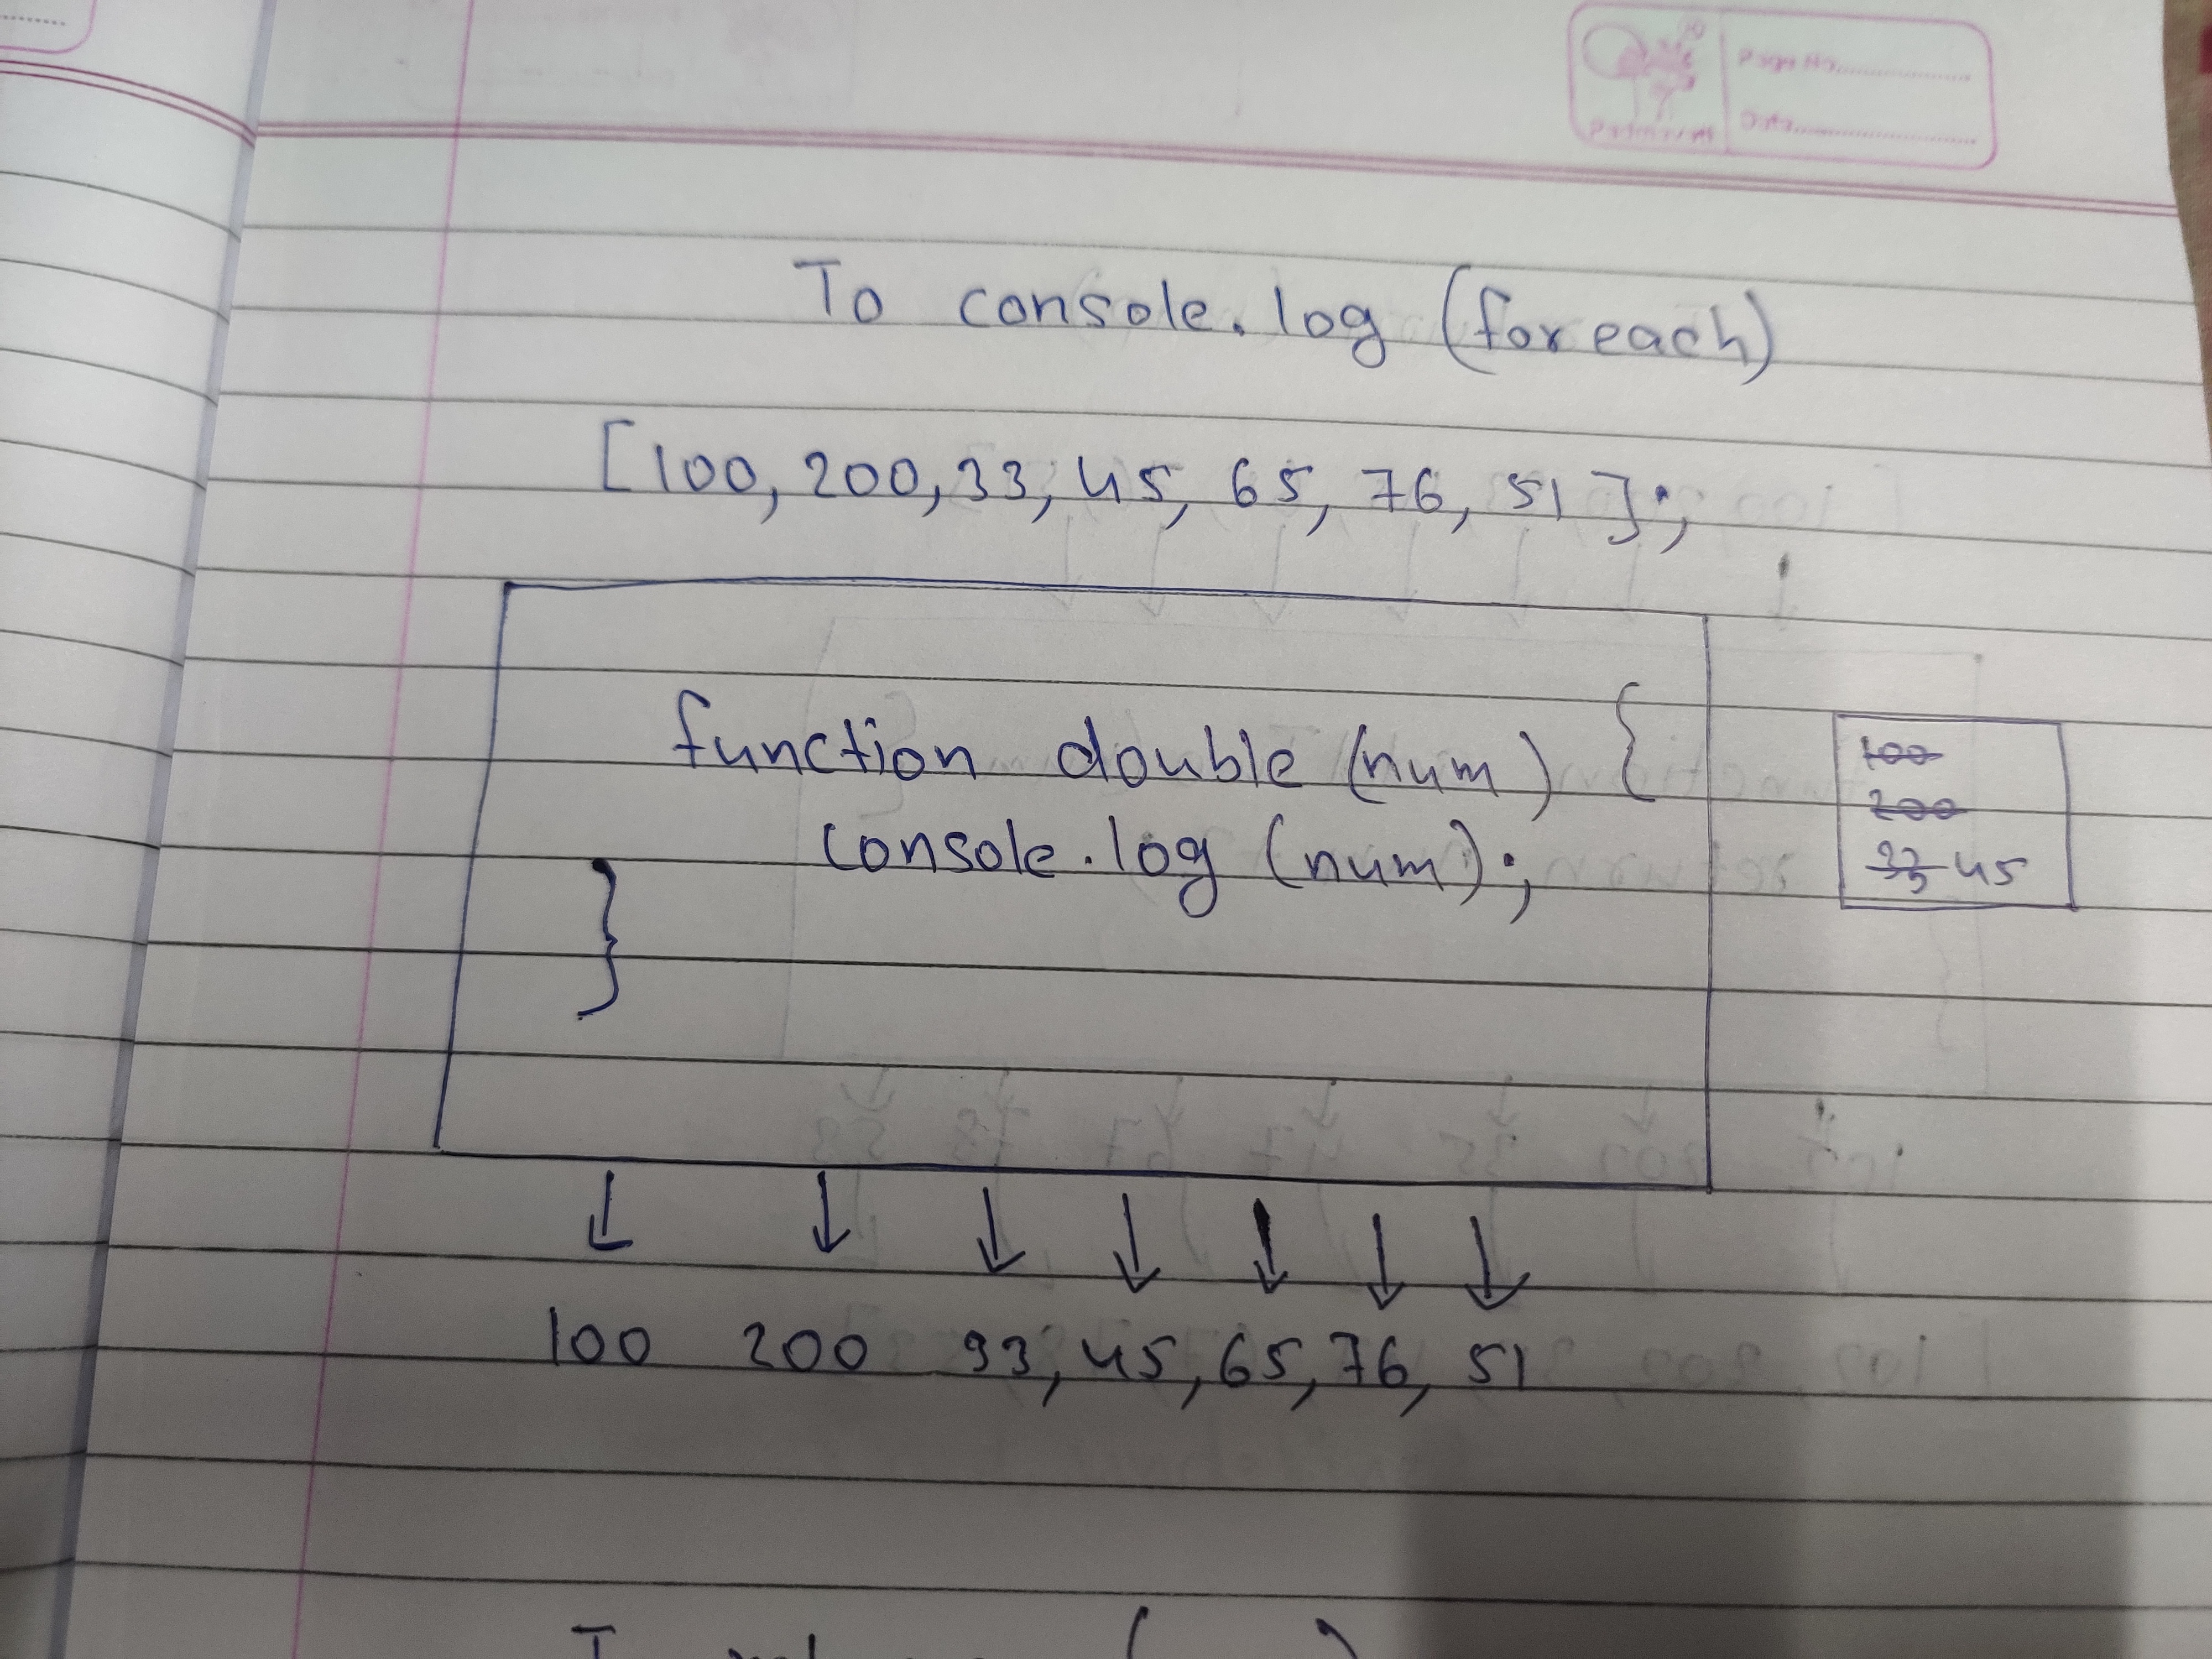 Page No.
Date
To console.log (foreach)
[100, 200, 33, 45, 65, 76, 51];
function double (num) {
console.log (num);
}
100
200
33 45
100 200 33, 45, 65, 76, 51